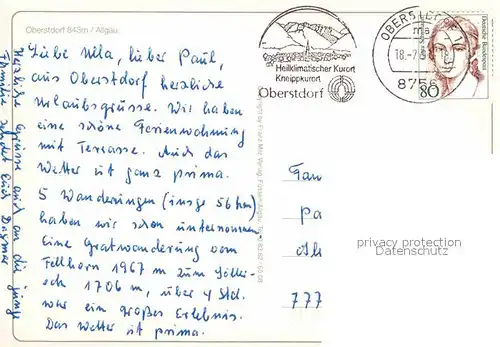 Oberstdorf 843m / Allgäu
Liebe Nela, lieber Paul,
aus Oberstdorf herzliche
Urlaubsgrüsse. Wir haben
eine schöne Ferienwohnung
mit Terrasse. Auch das
Wetter ist ganz prima.
5 Wanderungen (insge 56 km)
haben wir schon unternommen.
Eine Gratwanderung vom
Fellhorn 1967 m zum Söller-
eck 1706 m, über 4 Std.
war ein großes Erlebnis.
Das Wetter ist prima.
Herzliche Grüsse auch an die junge
Familie sendet Euch Dagmar
Heilklimatischer Kurort
Kneippkurort
Oberstdorf
18.-7.
Deutsche Bundespost
80
Fam
Pa
777
privacy protection
Datenschutz